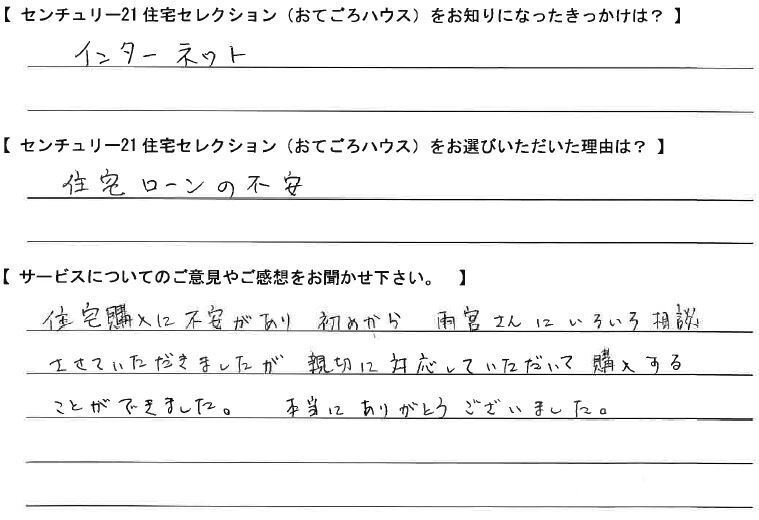 【 センチュリー21 住宅セレクション（おてごろハウス）をお知りになったきっかけは？ 】
インターネット
【 センチュリー21 住宅セレクション（おてごろハウス）をお選びいただいた理由は？ 】
住宅ローンの不安
【 サービスについてのご意見やご感想をお聞かせ下さい。 】
住宅購入に不安があり 初めから 雨宮さんにいろいろ相談
させていただきましたが 親切に対応していただいて購入する
ことができました。 本当にありがとうございました。